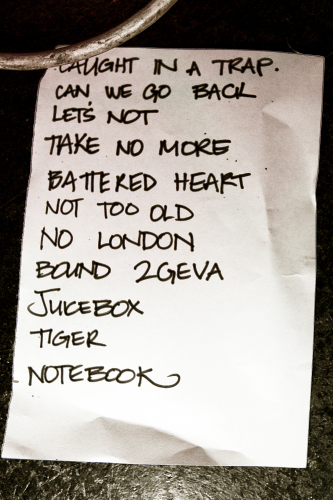 CAUGHT IN A TRAP.
CAN WE GO BACK
LET'S NOT
TAKE NO MORE
BATTERED HEART
NOT TOO OLD
NO LONDON
BOUND 2GEVA
JUKEBOX
TIGER
NOTEBOOK